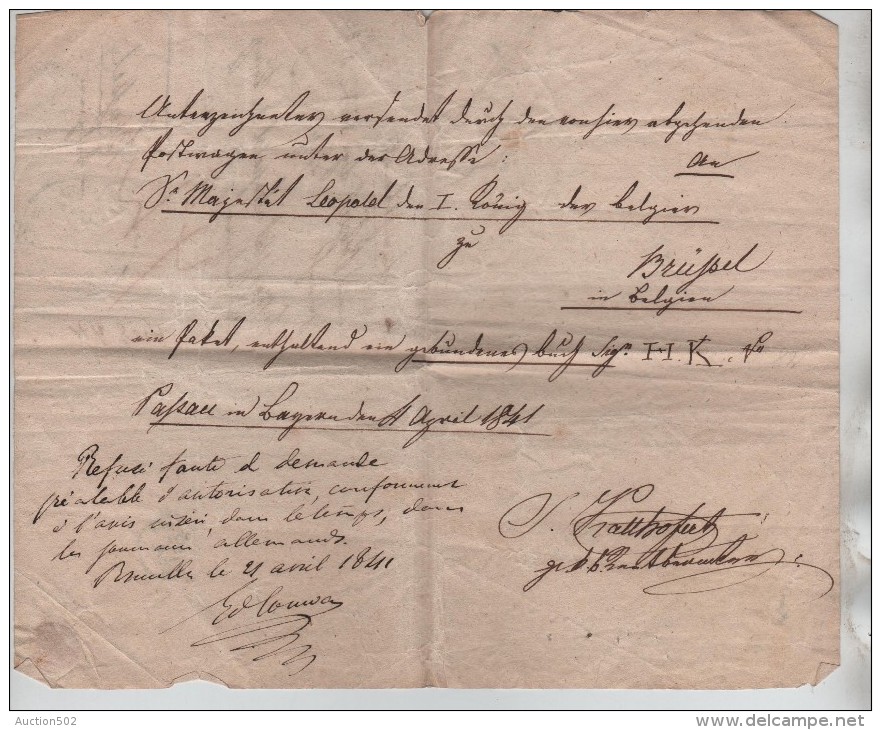 Unterzeichneter versendet durch den von hier abgehenden
Postwagen unter der Adresse: An
Sr Majestät Leopold den I. König der Belgier
zu
Brüssel
in Belgien
ein Paket, enthaltend ein gebundenes Buch Sign. H. K.
Passau in Bayern den April 1841
Refusé faute de demande
préalable d'autorisation, conformément
à l'avis inséré dans le temps, dans
les journaux allemands.
Bruxelles le 21 avril 1841
Auction502
www.delcampe.net